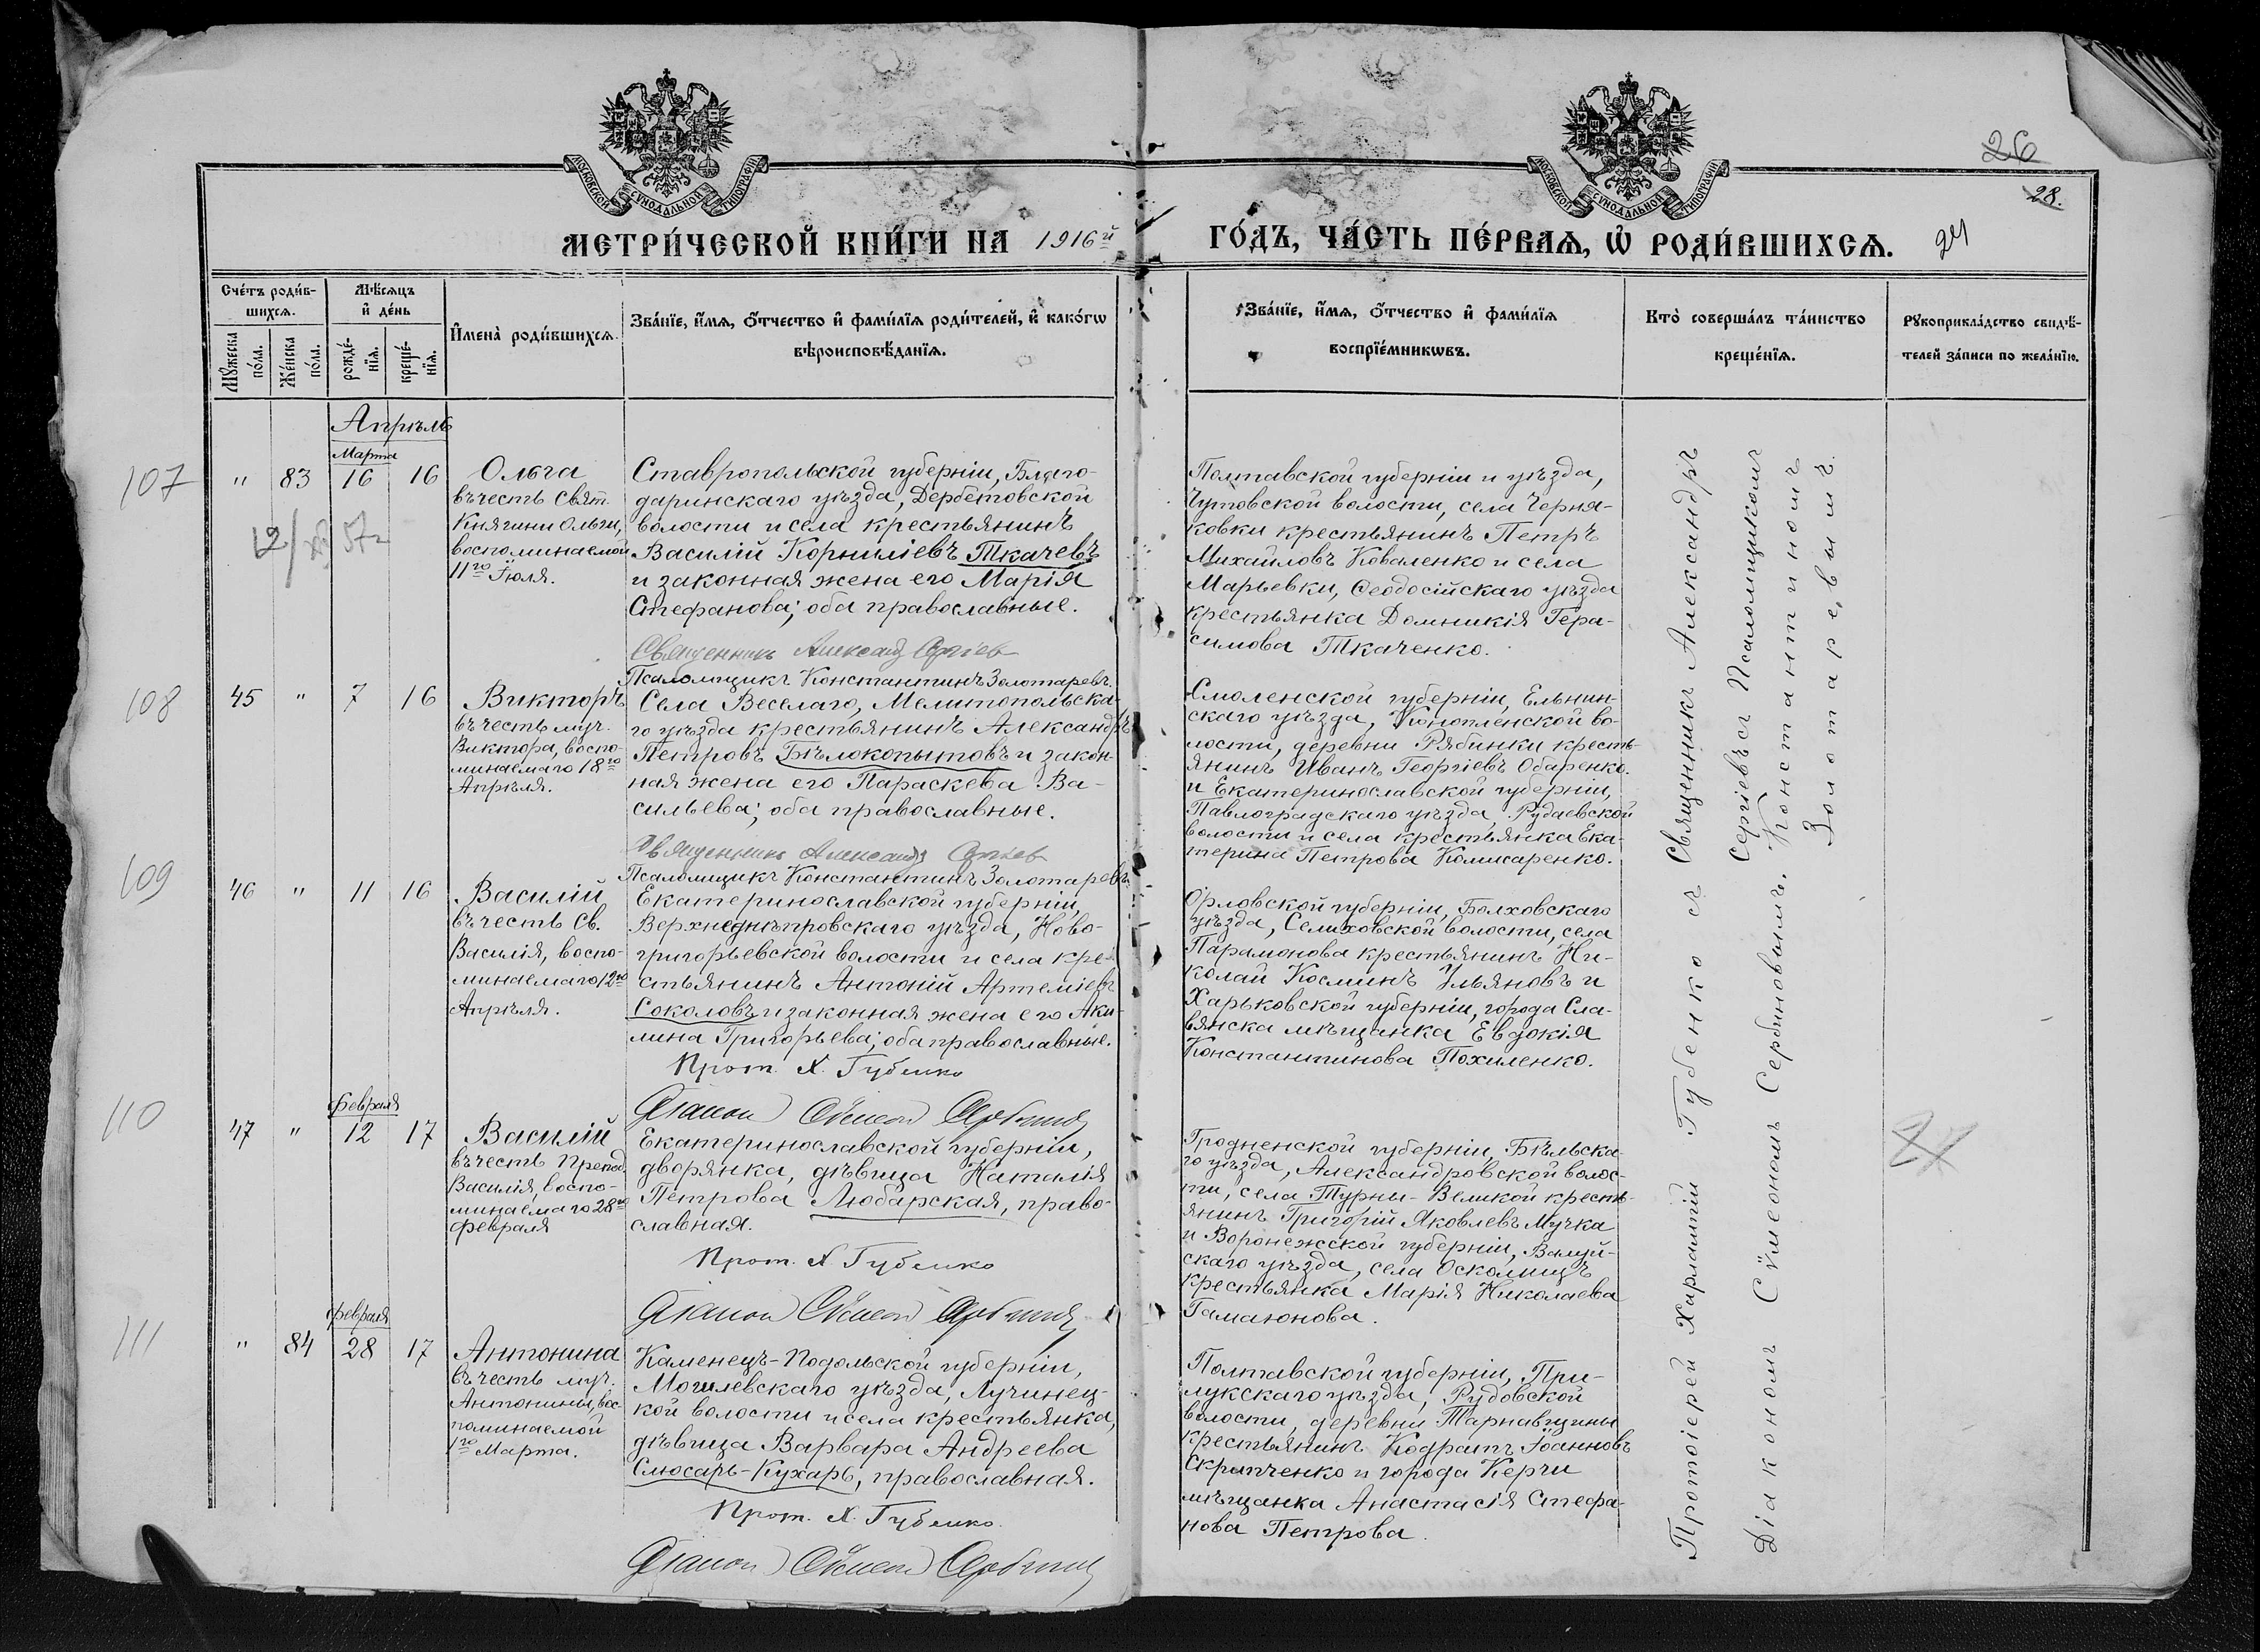 МОСКОВСКОЙ СѴНОДАЛЬНОЙ ТИПОГРАФІИ
МОСКОВСКОЙ СѴНОДАЛЬНОЙ ТИПОГРАФІИ
26
28.
МЕТРИ́ЧЕСКОЙ КНИ́ГИ НА 1916й ГО́ДЪ, ЧА́СТЬ ПЕ́РВАѦ, Ѡ҆ РОДИ́ВШИХСѦ.
24
Сче́тъ роди́в-
шихсѧ.
Мѣ́сѧцъ
и҆ де́нь
Мꙋ́жеска
по́ла.
Же́нска
по́ла.
рожде́-
нїѧ.
креще́-
нїѧ.
И҆мена̀ роди́вшихсѧ.
Зва́нїе, и҆́мѧ, ѻ҆́тчество и҆ фами́лїѧ роди́телей, и҆ како́гѡ
вѣроисповѣ́данїѧ.
Зва́нїе, и҆́мѧ, ѻ҆́тчество и҆ фами́лїѧ
воспрїе́мникѡвъ.
Кто̀ соверша́лъ та́инство
креще́нїѧ.
Рꙋкоприкла́дство свидѣ́-
телей за́писи по жела́нїю.
Апрѣль
Марта
107
" 83 16 16
Ольга
въ честь Свят.
Княгини Ольги,
воспоминаемой
11го Іюля.
Ставропольской губерніи, Благо-
даринскаго уѣзда, Дербетовской
волости и села крестьянинъ
Василій Корниліевъ Ткачевъ
и законная жена его Марія
Стефанова; оба православные.
Священникъ Александръ Сергіевъ
Псаломщикъ Константинъ Золотаревъ.
Полтавской губерніи и уѣзда,
Чутовской волости, села Черня-
ковки крестьянинъ Петръ
Михайловъ Коваленко и села
Марьевки, Ѳеодосійскаго уѣзда
крестьянка Домникія Гера-
симова Ткаченко.
108
45 " 7 16
Викторъ
въ честь муч.
Виктора, воспо-
минаемаго 18го
Апрѣля.
Села Веселаго, Мелитопольска-
го уѣзда крестьянинъ Александръ
Петровъ Бѣлокопытовъ и закон-
ная жена его Параскева Ва-
сильева; оба православные.
Священникъ Александръ Сергіевъ
Псаломщикъ Константинъ Золотаревъ.
Смоленской губерніи, Ельнин-
скаго уѣзда, Конопленской во-
лости, деревни Рябинки кресть-
янинъ Иванъ Георгіевъ Обаренко.
и Екатеринославской губерніи,
Павлоградскаго уѣзда, Рудаевской
волости и села крестьянка Ека-
терина Петрова Комисаренко.
109
46 " 11 16
Василій
въ честь Св.
Василія, воспо-
минаемаго 12го
Апрѣля.
Екатеринославской губерніи,
Верхнеднѣпровскаго уѣзда, Ново-
григорьевской волости и села кре-
стьянинъ Антоній Артеміевъ
Соколовъ и законная жена его Аки-
лина Григорьева; оба православные.
Прот. Х. Губенко
Діаконъ Сѵмеонъ Сербиновъ
Орловской губерніи, Болховскаго
уѣзда, Селиховской волости, села
Парамонова крестьянинъ Ни-
колай Косминъ Ульяновъ и
Харьковской губерніи, города Сла-
вянска мѣщанка Евдокія
Константинова Похиленко.
110
февраля
47 " 12 17
Василій
въ честь Препод.
Василія, воспо-
минаемаго 28го
февраля
Екатеринославской губерніи,
дворянка, дѣвица Наталія
Петрова Любарская, право-
славная.
Прот. Х. Губенко
Діаконъ Сѵмеонъ Сербиновъ
Гродненской губерніи, Бѣльска-
го уѣзда, Александровской волос-
ти, села Турны-Великой кресть-
янинъ Григорій Яковлевъ Мучка
и Воронежской губерніи, Валуй-
скаго уѣзда, села Осколищъ
крестьянка Марія Николаева
Гамаюнова.
111
февраля
" 84 28 17
Антонина
въ честь муч.
Антонины, вос-
поминаемой
1го Марта.
Каменецъ-Подольской губерніи,
Могилевскаго уѣзда, Лучинец-
кой волости и села крестьянка,
дѣвица Варвара Андреева
Слюсарь-Кухарь, православная.
Прот. Х. Губенко
Діаконъ Сѵмеонъ Сербиновъ
Полтавской губерніи, При-
лукскаго уѣзда, Рудовской
волости, деревни Тарнавщины
крестьянинъ Кодратъ Іоанновъ
Скрипченко и города Керчи
мѣщанка Анастасія Стефа-
нова Петрова.
Священникъ Александръ
Сергіевъ съ Псаломщикомъ
Константиномъ
Золотаревымъ.
Протоіерей Харлампій Губенко съ
Діакономъ Сѵмеономъ Сербиновымъ.